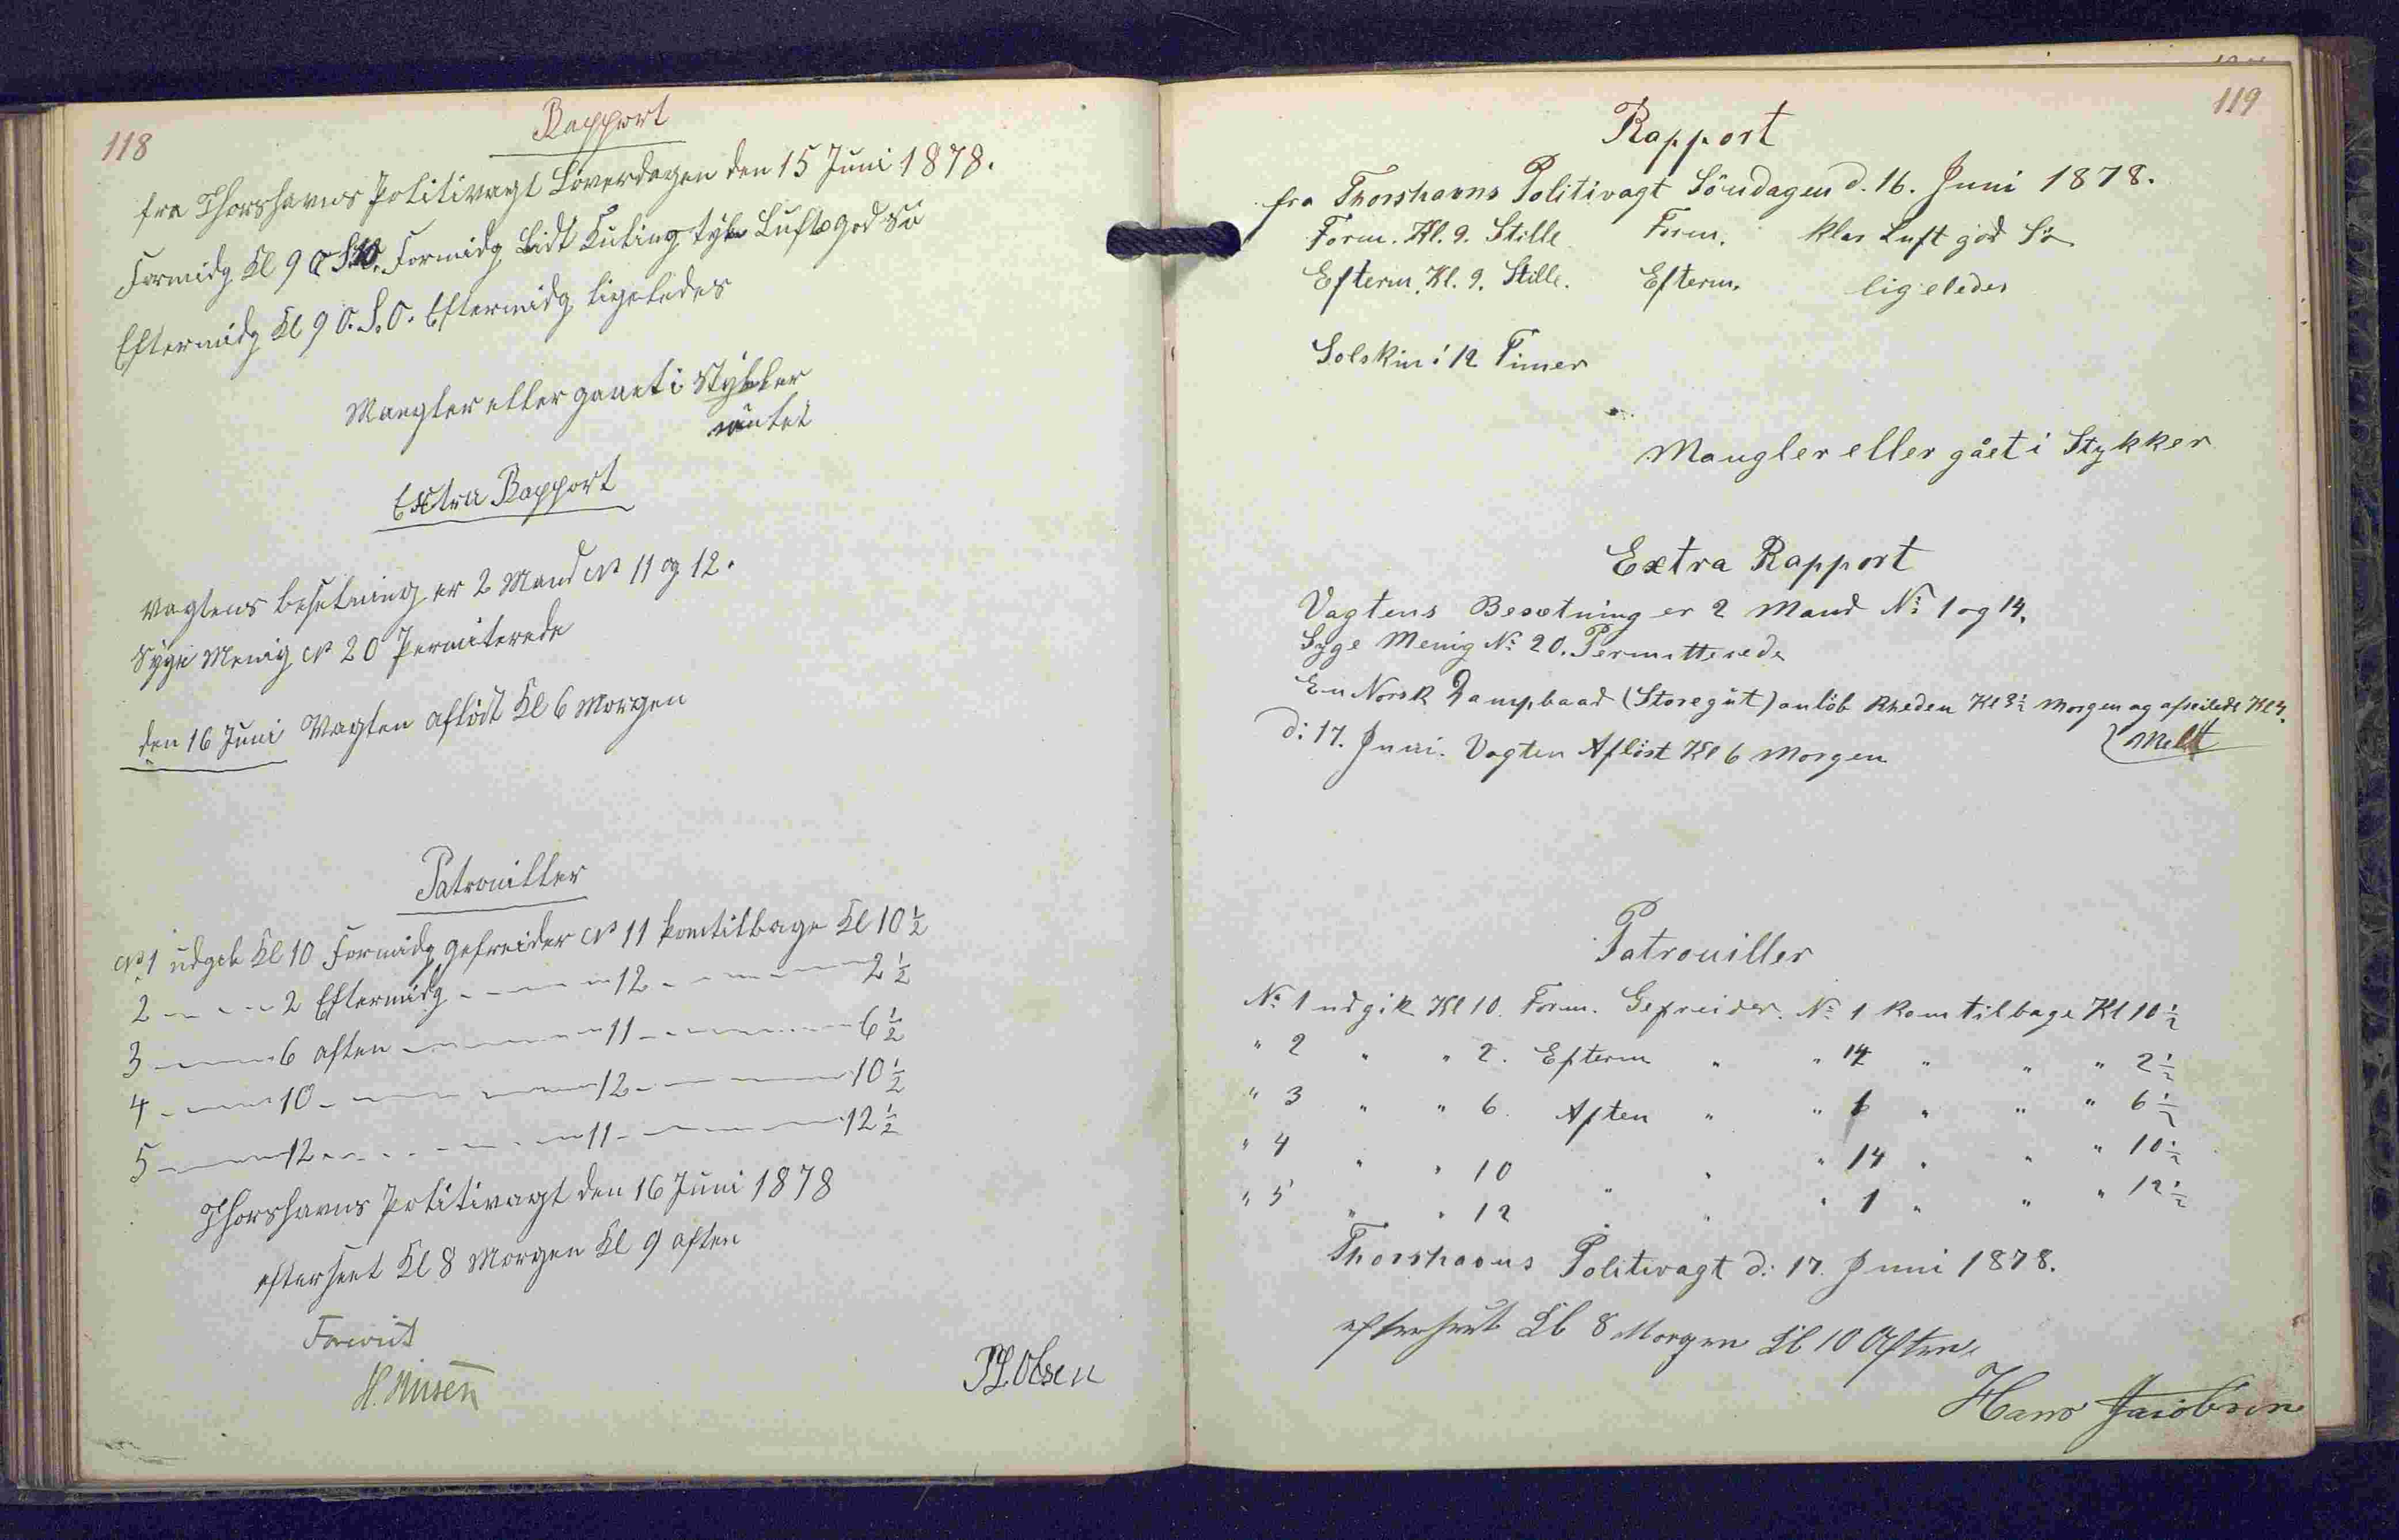 118
Rapport
fra Thorshavns Politivagt Löverdagen den 15 Juni 1878.
Formidg Kl 9 O S.O. Formidg Lidt Kuling tyk Luft god Sö
Eftermidg Kl 9 O.S.O. Eftermidg ligeledes
Mangler eller gaaet i Stykker
intet
Extra Rapport
Vagtens besetning er 2 Mand No 11 og 12.
Syge Menig No 20 Permiterede
den 16 Juni Vagten aflöst Kl 6 Morgen
Patrouiller
No 1 udgik Kl 10 Formidg gefreider No 11 kom tilbage Kl 10 1/2
2 — — 2 Eftermidg — — 12 — — 2 1/2
3 — — 6 aften — — 11 — — 6 1/2
4 — — 10 — — 12 — — 10 1/2
5 — — 12 — — 11 — — 12 1/2
Thorshavns Politivagt den 16 Juni 1878
efterseet Kl 8 Morgen Kl 9 aften
Forevist
Olsen
119
Rapport
fra Thorshavns Politivagt Söndagen d. 16. Juni 1878.
Form. Kl. 9. Stille Form. klar Luft god Sö
Efterm. Kl. 9. Stille. Efterm. ligeledes
Solskin i 12 Timer
Mangler eller gået i Stykker
Extra Rapport
Vagtens Besætning er 2 Mand No 1 og 14.
Syge Menig No 20. Permitterede
En Norsk Dampbaad (Storegut) anlöb Rheden Kl 3 1/2 Morgen og afseilede Kl 4.
Meldt
d: 17. Juni. Vagten Aflöst Kl 6 Morgen
Patrouiller
No 1 udgik Kl 10. Form. Gefreider. No 1 kom tilbage Kl 10 1/2
" 2 " " 2. Efterm " " 14 " " " 2 1/2
" 3 " " 6. Aften " " 1 " " " 6 1/2
" 4 " " 10 " " " 14 " " " 10 1/2
" 5 " " 12 " " " 1 " " " 12 1/2
Thorshavns Politivagt d: 17. Juni 1878.
efterseet Kl 8 Morgen Kl 10 Aften.
Hans Jacobsen